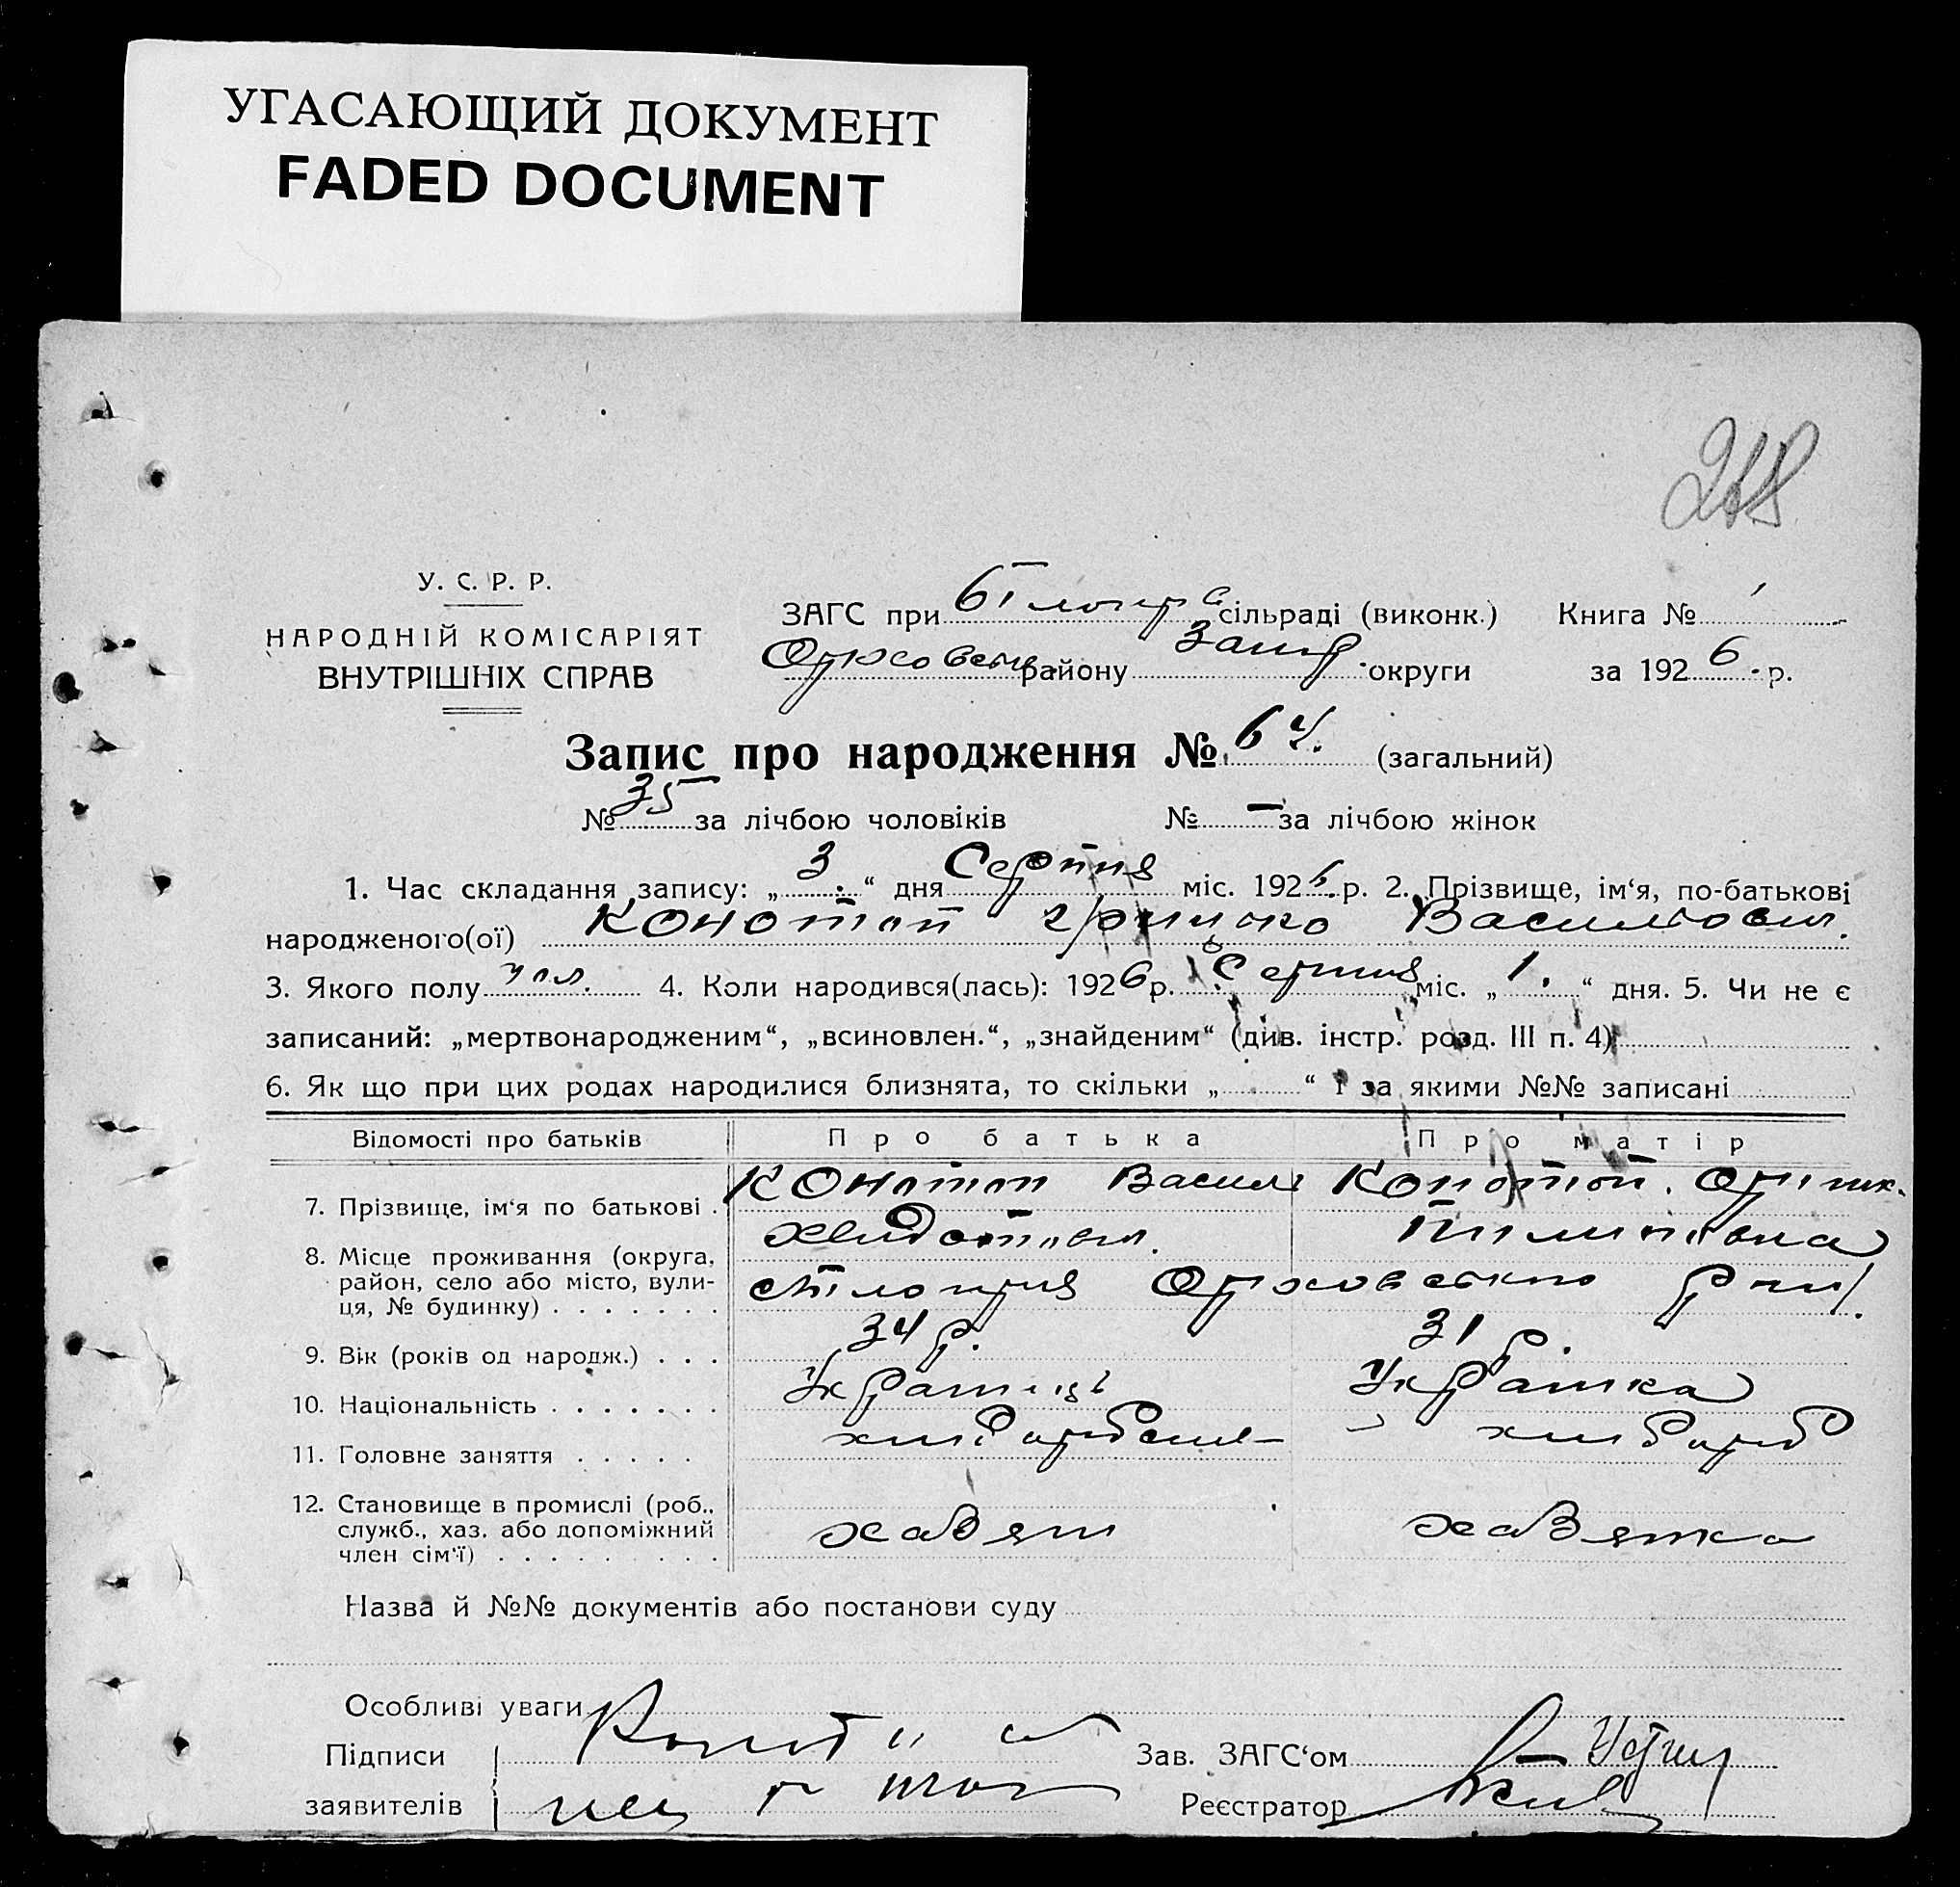 УГАСАЮЩИЙ ДОКУМЕНТ
FADED DOCUMENT
У. С. Р. Р.
НАРОДНІЙ КОМІСАРІЯТ
ВНУТРІШНІХ СПРАВ
ЗАГС при сільраді (виконк.) Книга № 1
району Запор округи за 1926 р.
Запис про народження № 64. (загальний)
№ 35 за лічбою чоловіків № — за лічбою жінок
1. Час складання запису: „3.“ дня Серпня міс. 1926 р. 2. Прізвище, ім‘я, по-батькові
народженого(ої) Конотоп Грицько Васильович.
3. Якого полу чол. 4. Коли народився(лась): 1926 р. Серпня міс. „1.“ дня. 5. Чи не є
записаний: „мертвонародженим“, „всиновлен.“, „знайденим“ (див. інстр. розд. III п. 4)
6. Як що при цих родах народилися близнята, то скільки „ “ і за якими №№ записані
Відомості про батьків Про батька Про матір
7. Прізвище, ім‘я по батькові . Конотоп Василь Конотоп.
Пилиповна
8. Місце проживання (округа,
район, село або місто, вули-
ця, № будинку) . . . . . . .
9. Вік (років од народж.) . . . 34 р. 31 р.
10. Національність . . . . . . . Українець Українка
11. Головне заняття . . . . . хлібороб
12. Становище в промислі (роб.,
служб., хаз. або допоміжний
член сім‘ї) . . . . . . . . . хазяїн хазяйка
Назва й №№ документів або постанови суду
Особливі уваги
Підписи Зав. ЗАГС‘ом
заявителів Реєстратор